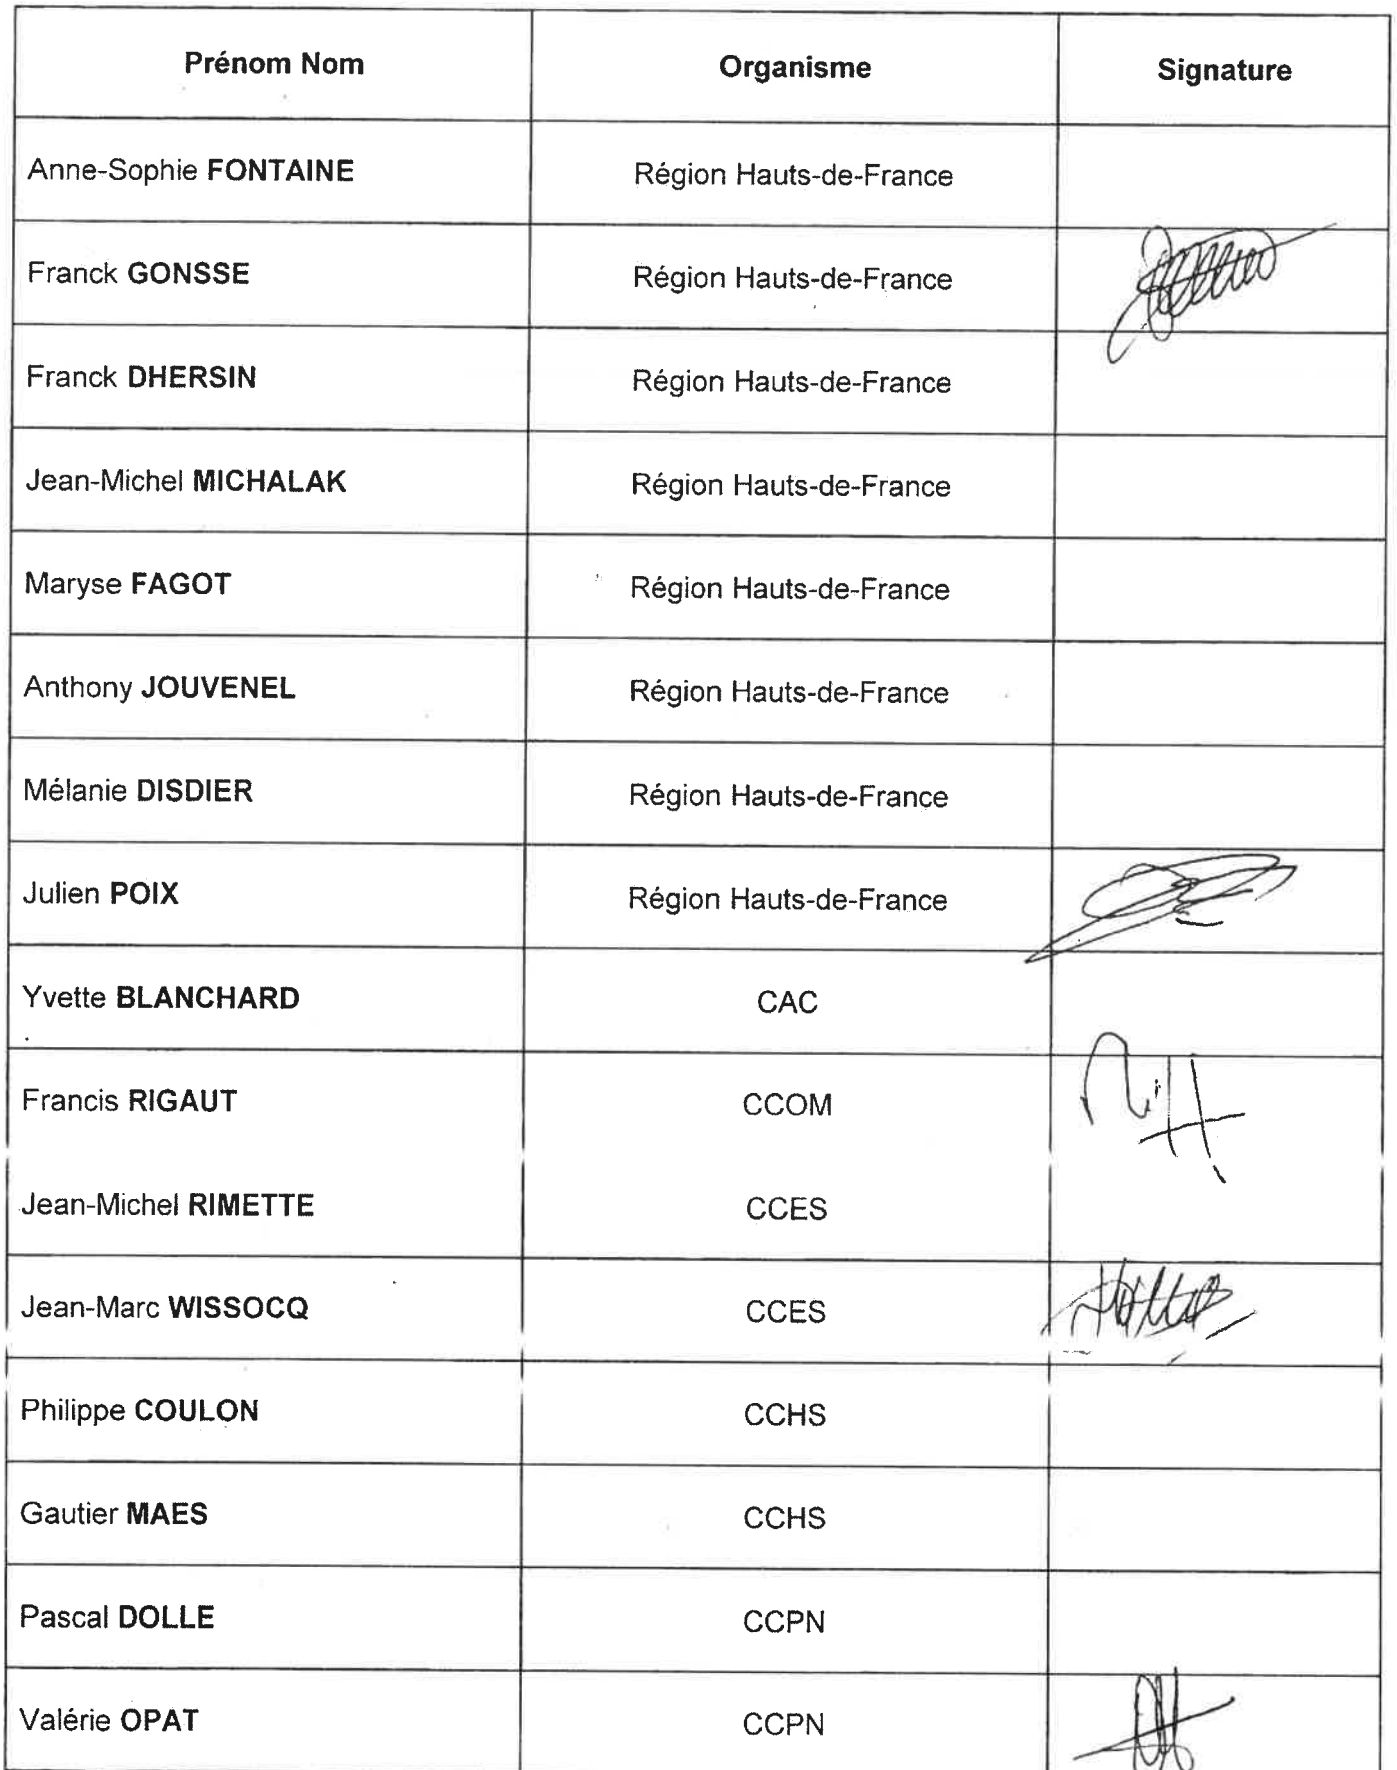 Prénom Nom Organisme Signature
Anne-Sophie FONTAINE Région Hauts-de-France
Franck GONSSE Région Hauts-de-France
Franck DHERSIN Région Hauts-de-France
Jean-Michel MICHALAK Région Hauts-de-France
Maryse FAGOT Région Hauts-de-France
Anthony JOUVENEL Région Hauts-de-France
Mélanie DISDIER Région Hauts-de-France
Julien POIX Région Hauts-de-France
Yvette BLANCHARD CAC
Francis RIGAUT CCOM
Jean-Michel RIMETTE CCES
Jean-Marc WISSOCQ CCES
Philippe COULON CCHS
Gautier MAES CCHS
Pascal DOLLE CCPN
Valérie OPAT CCPN